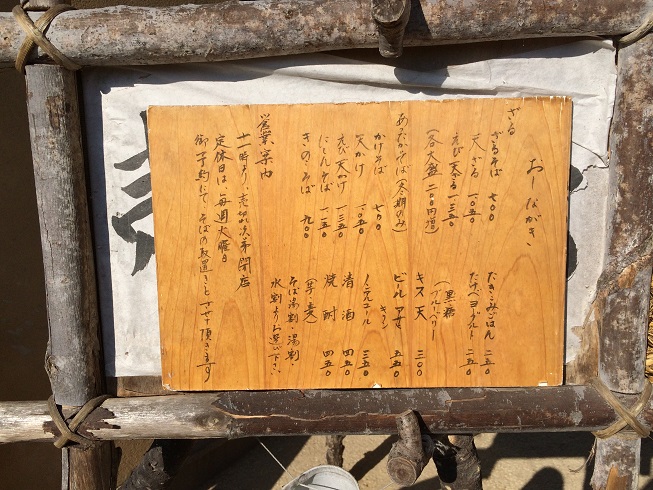 おしながき
ざる
ざるそば 七〇〇
天ざる 一〇五〇
えび天ざる 一三五〇
(各大盛 二〇〇円増)
あたたかそば(冬期のみ)
かけそば 七〇〇
天かけ 一〇五〇
えび天かけ 一三五〇
にしんそば 一一五〇
きのこそば 九〇〇
営業案内
十一時より、売切れ次第閉店
定休日は、毎週火曜日
御予約にて、そばの取置きもさせて頂きます
たきこみごはん 二五〇
ヨーグルト 二五〇
(黒糖
ブルーベリー)
キス天 三〇〇
ビール 五五〇
キリン
ノンアルコール 三五〇
清酒 四五〇
焼酎 四五〇
(芋・麦)
そば湯割・湯割・
水割よりお選び下さい